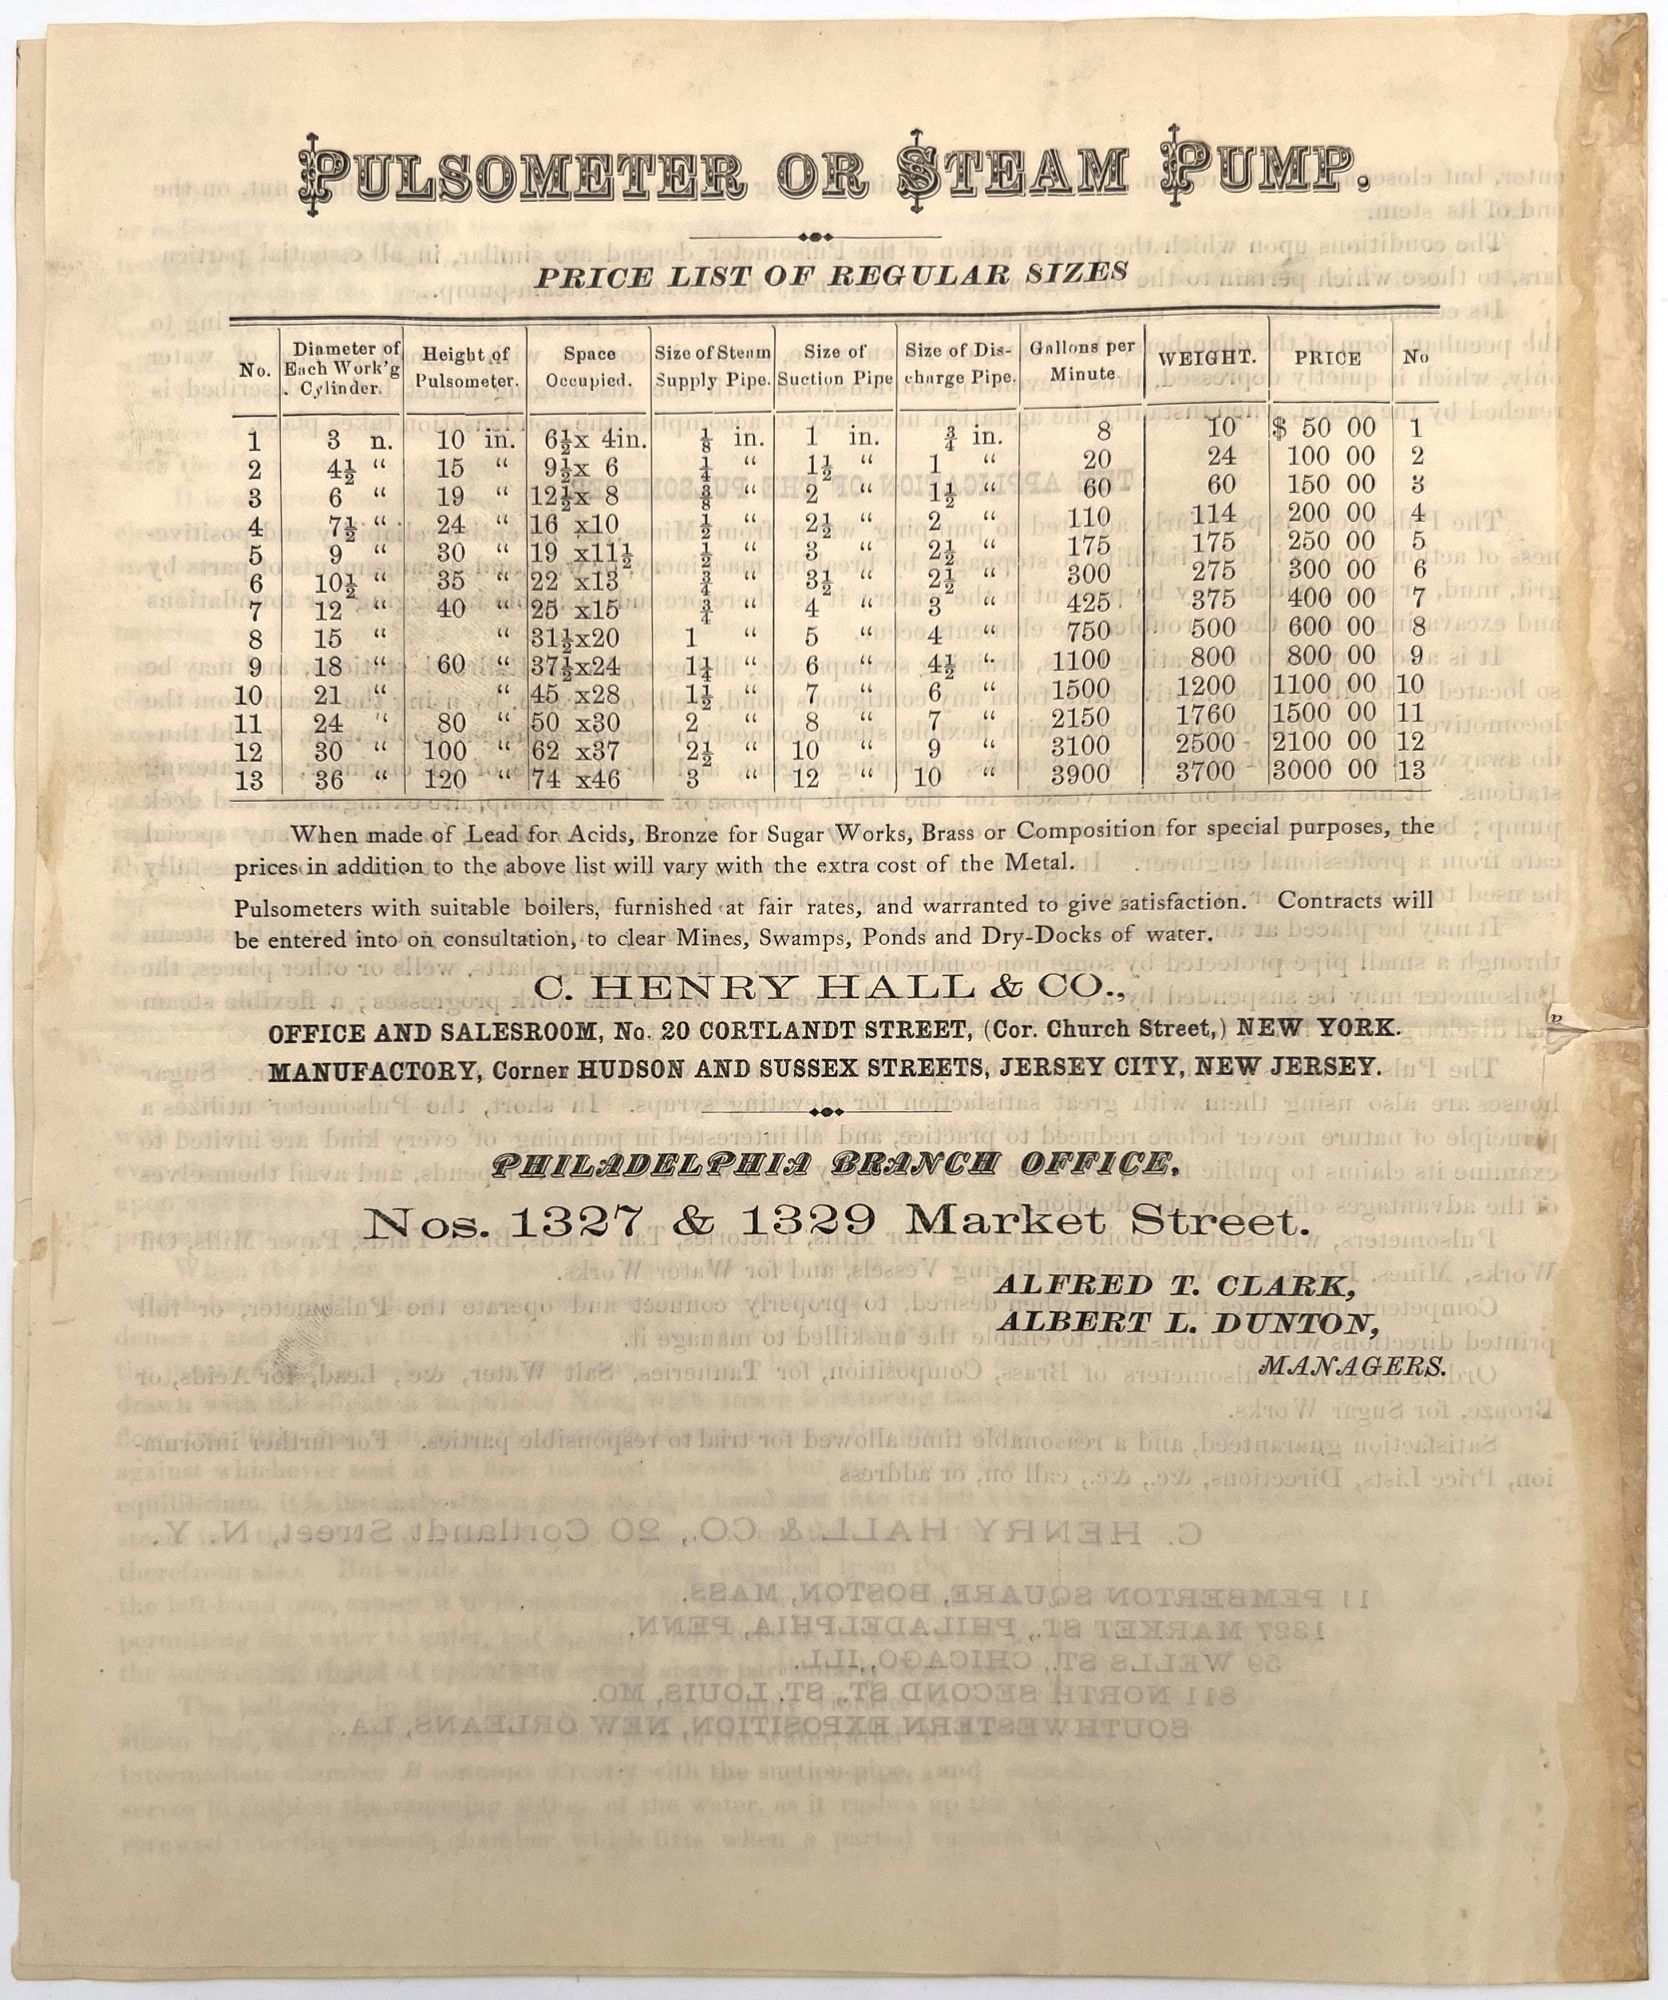 PULSOMETER OR STEAM PUMP.
PRICE LIST OF REGULAR SIZES
No. | Diameter of Each Work'g Cylinder. | Height of Pulsometer. | Space Occupied. | Size of Steam Supply Pipe. | Size of Suction Pipe | Size of Discharge Pipe. | Gallons per Minute | WEIGHT. | PRICE | No
1 3 n. 10 in. 6½x 4in. ⅛ in. 1 in. ¾ in. 8 10 $ 50 00 1
2 4½ “ 15 “ 9½x 6 ¼ “ 1½ “ 1 “ 20 24 100 00 2
3 6 “ 19 “ 12½x 8 ⅜ “ 2 “ 1½ “ 60 60 150 00 3
4 7½ “ 24 “ 16 x10 ½ “ 2½ “ 2 “ 110 114 200 00 4
5 9 “ 30 “ 19 x11½ ½ “ 3 “ 2½ “ 175 175 250 00 5
6 10½ “ 35 “ 22 x13 ¾ “ 3½ “ 2½ “ 300 275 300 00 6
7 12 “ 40 “ 25 x15 ¾ “ 4 “ 3 “ 425 375 400 00 7
8 15 “ “ 31½x20 1 “ 5 “ 4 “ 750 500 600 00 8
9 18 “ 60 “ 37½x24 1¼ “ 6 “ 4½ “ 1100 800 800 00 9
10 21 “ “ 45 x28 1½ “ 7 “ 6 “ 1500 1200 1100 00 10
11 24 “ 80 “ 50 x30 2 “ 8 “ 7 “ 2150 1760 1500 00 11
12 30 “ 100 “ 62 x37 2½ “ 10 “ 9 “ 3100 2500 2100 00 12
13 36 “ 120 “ 74 x46 3 “ 12 “ 10 “ 3900 3700 3000 00 13
When made of Lead for Acids, Bronze for Sugar Works, Brass or Composition for special purposes, the
prices in addition to the above list will vary with the extra cost of the Metal.
Pulsometers with suitable boilers, furnished at fair rates, and warranted to give satisfaction. Contracts will
be entered into on consultation, to clear Mines, Swamps, Ponds and Dry-Docks of water.
C. HENRY HALL & CO.,
OFFICE AND SALESROOM, No. 20 CORTLANDT STREET, (Cor. Church Street,) NEW YORK.
MANUFACTORY, Corner HUDSON AND SUSSEX STREETS, JERSEY CITY, NEW JERSEY.
PHILADELPHIA BRANCH OFFICE,
Nos. 1327 & 1329 Market Street.
ALFRED T. CLARK,
ALBERT L. DUNTON,
MANAGERS.